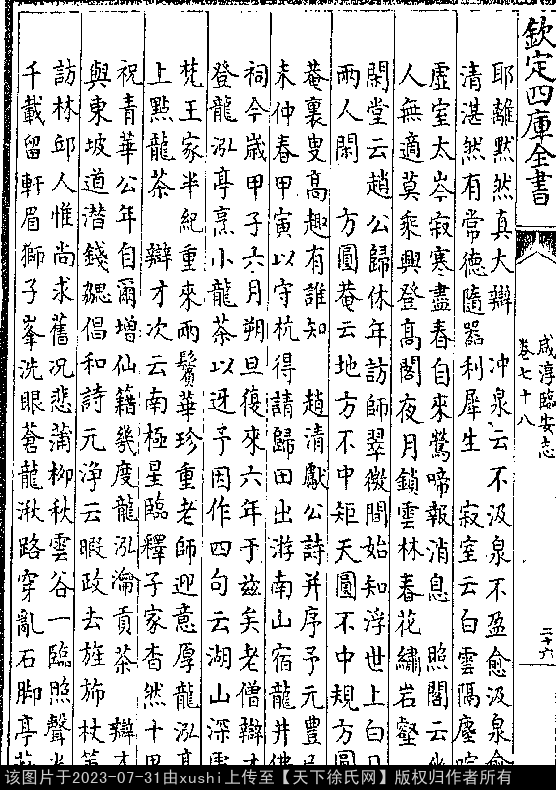 欽定四庫全書
咸淳臨安志
卷七十八
二十六
耶離黙然真大辯　冲泉云不汲泉不盈愈汲泉愈
清湛然有常德隨器利犀生　寂室云白雲隔塵
虚室太岑寂寒盡春自來鶯啼報消息　照閣云
人無適莫乘興登高閣夜月鎖雲林春花繡岩壑
閑堂云趙公歸休年訪師翠微間始知浮世上白日
兩人閑　方圓菴云地方不中矩天圓不中規方圓
菴裏叟高趣有誰知　趙清獻公詩并序予元豐己
未仲春甲寅以守杭得請歸田出游南山宿龍井佛
祠今嵗甲子六月朔旦復來六年于兹矣老僧辯才
登龍泓亭烹小龍茶以迓予因作四句云湖山深
梵王家半紀重來兩鬢華珍重老師迎意厚龍泓亭
上點龍茶　辯才次云南極星臨釋子家杳然十里
祝青華公年自爾增仙籍幾度龍泓瀹貢茶　辯才
與東坡道潛錢勰倡和詩元浄云暇政去旌旆杖
訪林邱人惟尚求舊况悲蒲柳秋雲谷一臨照聲光
千載留軒眉獅子峯洗眼蒼龍湫路穿亂石脚亭
该图片于2023-07-31由xushi上传至【天下徐氏网】版权归作者所有